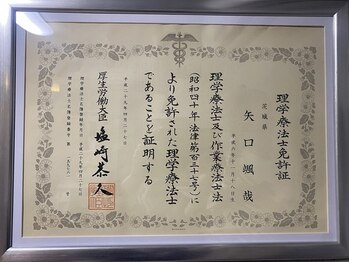 理学療法士免許証
茨城県
矢口颯哉
平成六年十二月十八日生
理学療法士及び作業療法士法
(昭和四十年法律第百三十七号)に
より免許された理学療法士
であることを証明する
平成二十九年四月二十七日
厚生労働大臣
塩崎恭久